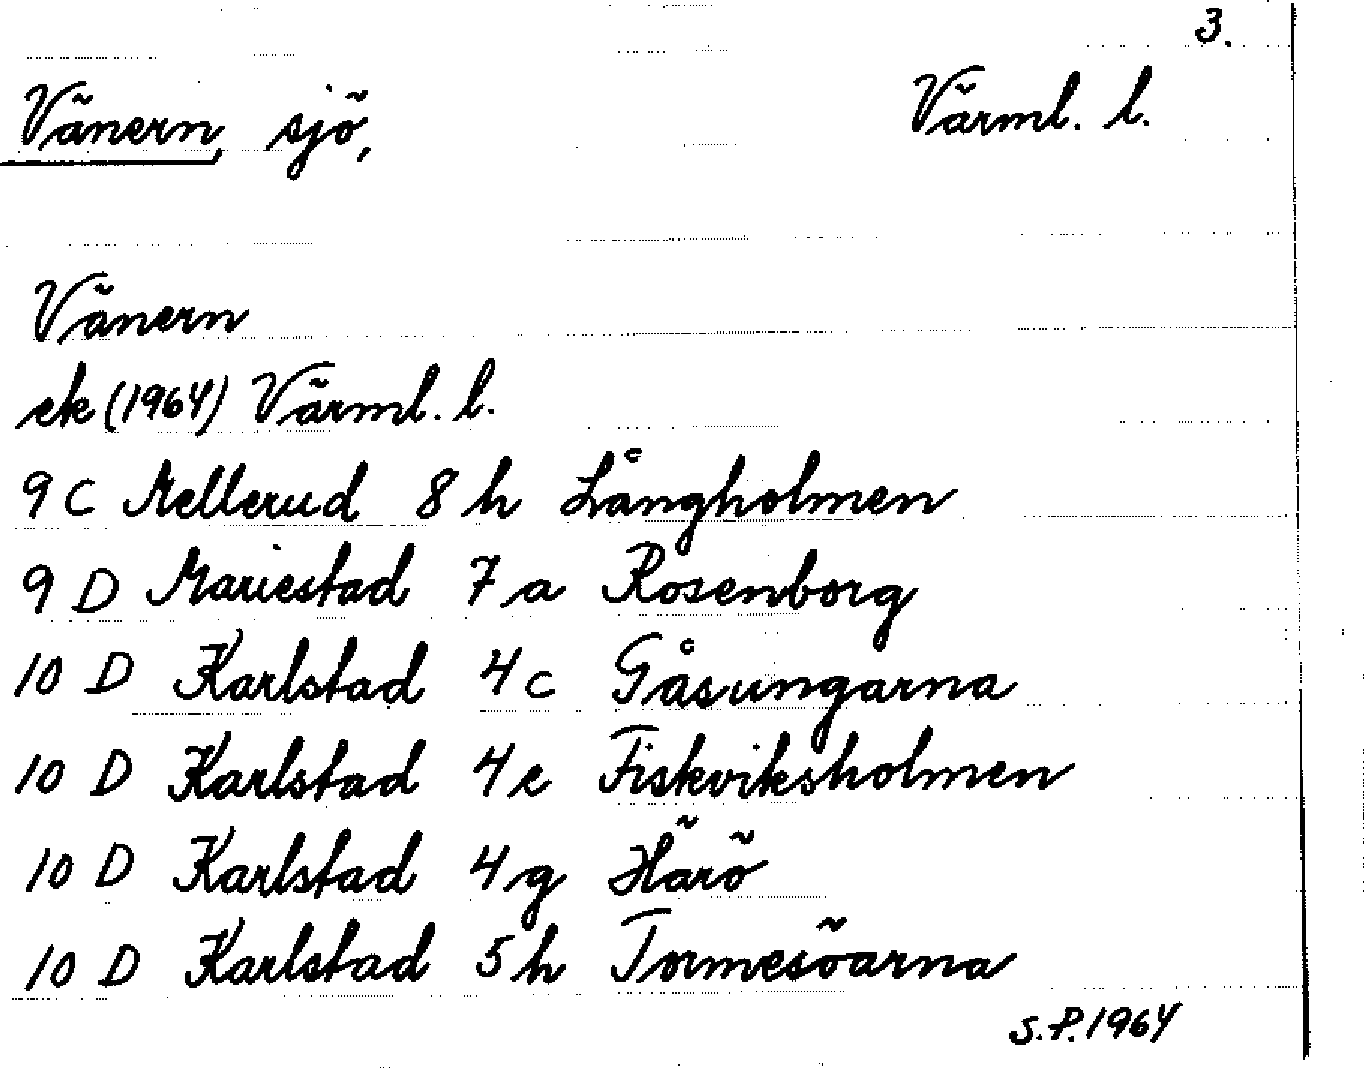 3.
Vänern, sjö, Värml. l.
Vänern
ek (1964) Värml. l.
9 C Mellerud 8 h Långholmen
9 D Mariestad 7 a Rosenborg
10 D Karlstad 4 c Gåsungarna
10 D Karlstad 4 e Fiskviksholmen
10 D Karlstad 4 g Härö
10 D Karlstad 5 h Tormesöarna
S.P. 1964